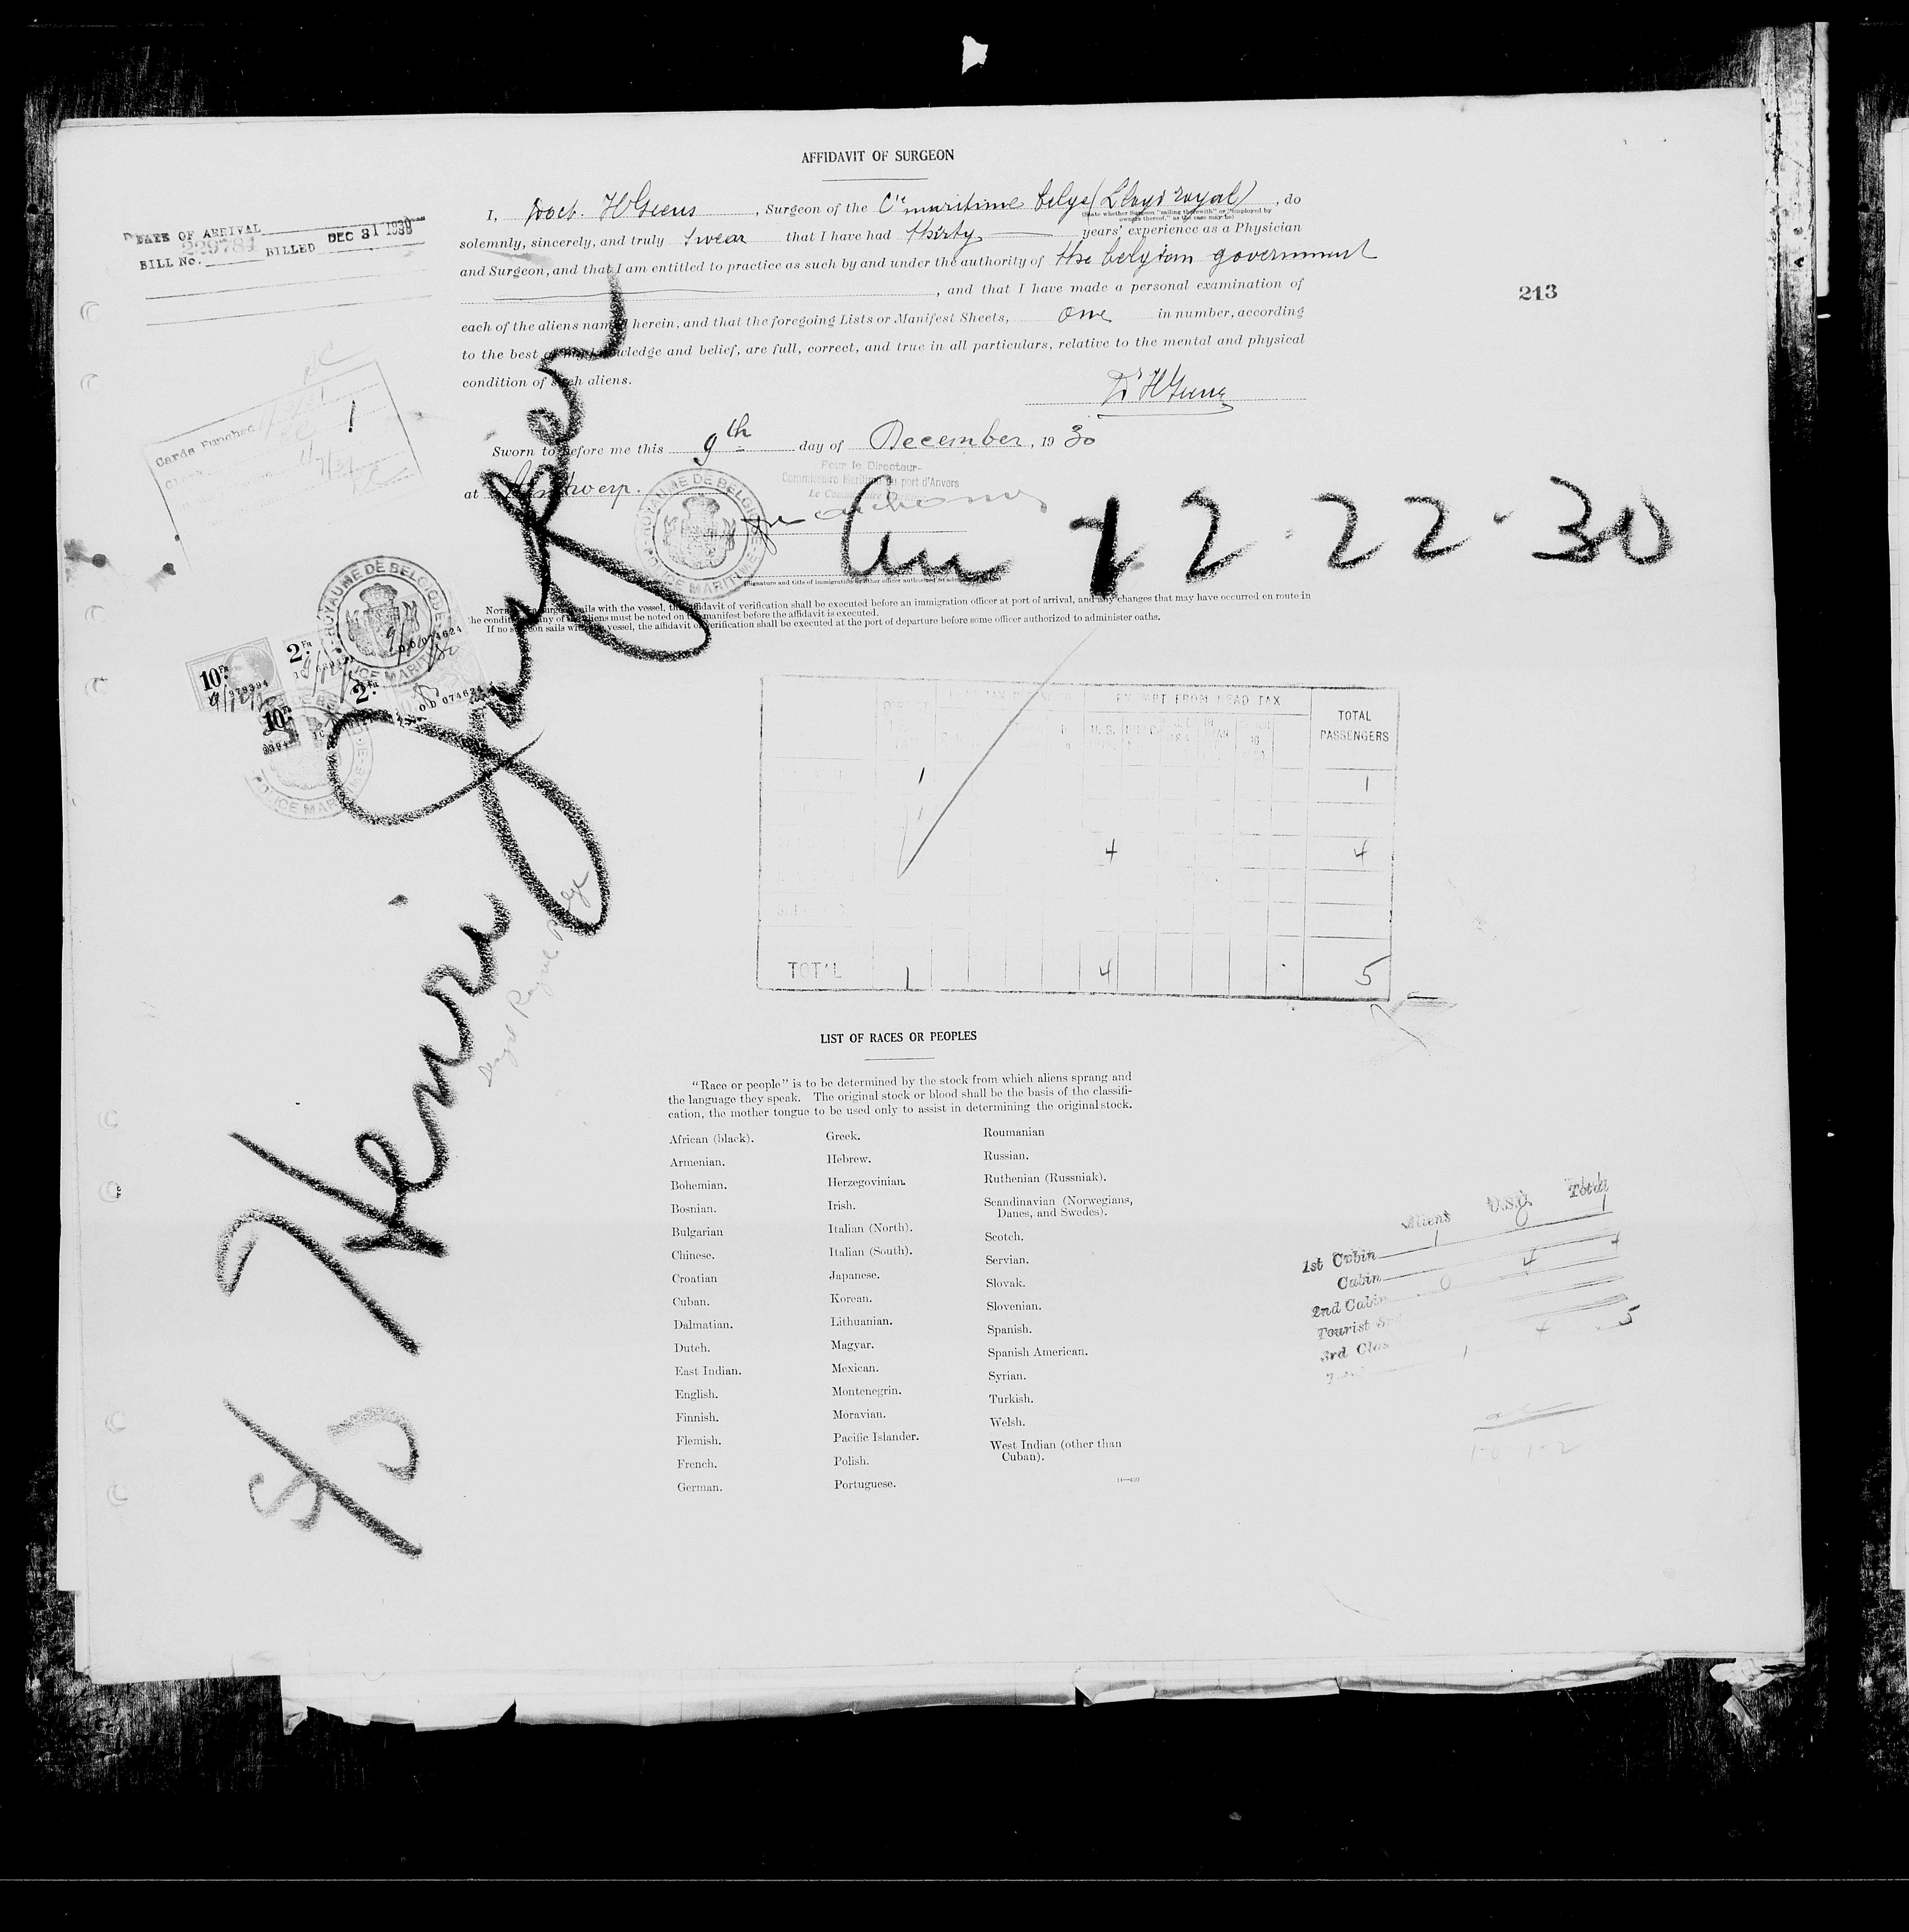 AFFIDAVIT OF SURGEON
I, Doct. H Geens, Surgeon of the Cie maritime belge (Lloyd royal), do
(State whether Surgeon "sailing therewith" or "employed by
owners thereof," as the case may be)
solemnly, sincerely, and truly swear that I have had thirty years' experience as a Physician
and Surgeon, and that I am entitled to practice as such by and under the authority of the belgian government
, and that I have made a personal examination of
each of the aliens named herein, and that the foregoing Lists or Manifest Sheets, one in number, according
to the best of my knowledge and belief, are full, correct, and true in all particulars, relative to the mental and physical
condition of such aliens.
Dr H Geens
Sworn to before me this 9th day of December, 1930
at Antwerp.
Pour le Directeur-
Commissaire Maritime du port d'Anvers
ROYAUME DE BELGIQUE
POLICE MARITIME
(Signature and title of immigration or other officer authorized to
NOTE surgeon sails with the vessel, the affidavit of verification shall be executed before an immigration officer at port of arrival, and any changes that may have occurred en route in
the condition of any of the aliens must be noted on the manifest before the affidavit is executed.
If no surgeon sails with the vessel, the affidavit of verification shall be executed at the port of departure before some officer authorized to administer oaths.
DATE OF ARRIVAL
BILL No. 229784 BILLED DEC 31 1930
213
Cards Punched
12-22-30
S/S Henri Jaspar
Lloyd Royal Belge
ROYAUME DE BELGIQUE
POLICE MARITIME
10 Fr
2 Fr
979394
OD 074624
10 Fr
2 Fr
OD 07462
POLICE MARITIME
EXEMPT FROM HEAD TAX
U.S.
TOTAL
PASSENGERS
1 1
4 4
TOTAL 1 4 5
LIST OF RACES OR PEOPLES
"Race or people" is to be determined by the stock from which aliens sprang and
the language they speak. The original stock or blood shall be the basis of the classifi-
cation, the mother tongue to be used only to assist in determining the original stock.
African (black).
Armenian.
Bohemian.
Bosnian.
Bulgarian
Chinese.
Croatian
Cuban.
Dalmatian.
Dutch.
East Indian.
English.
Finnish.
Flemish.
French.
German.
Greek.
Hebrew.
Herzegovinian.
Irish.
Italian (North).
Italian (South).
Japanese.
Korean.
Lithuanian.
Magyar.
Mexican.
Montenegrin.
Moravian.
Pacific Islander.
Polish.
Portuguese.
Roumanian
Russian.
Ruthenian (Russniak).
Scandinavian (Norwegians,
Danes, and Swedes).
Scotch.
Servian.
Slovak.
Slovenian.
Spanish.
Spanish American.
Syrian.
Turkish.
Welsh.
West Indian (other than
Cuban).
Aliens U.S.C. Total
1st Cabin 1 0 1
Cabin 0 4 4
2nd Cabin
Tourist 3rd
3rd Clas
1 4 5